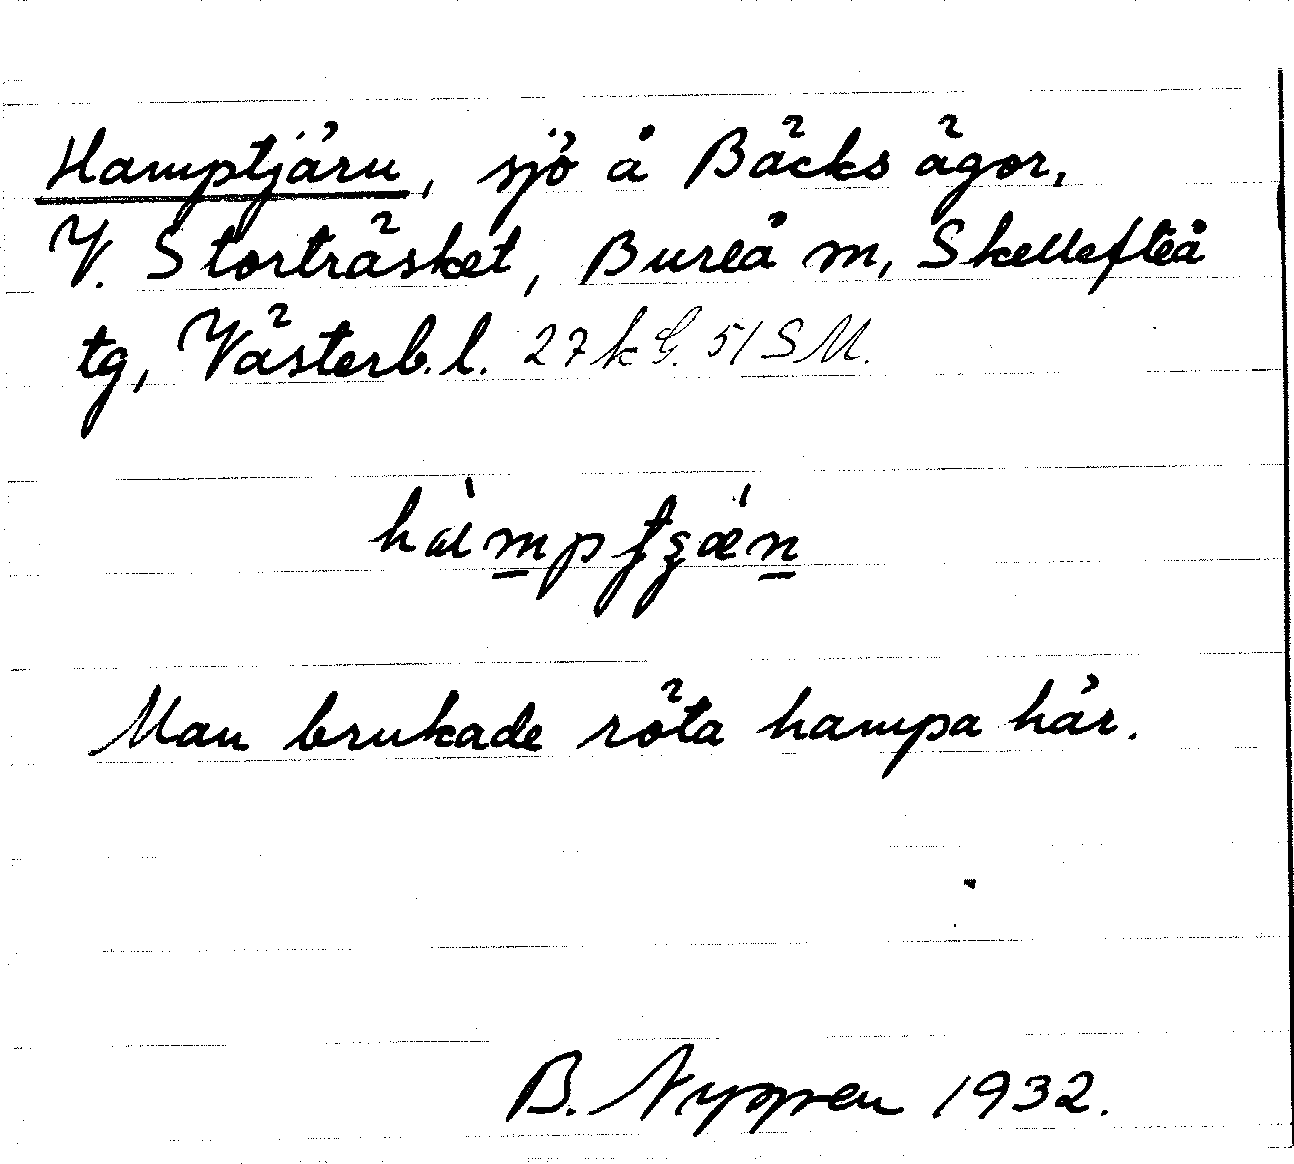 Hamptjärn, sjö å Bäcks ägor,
V. Storträsket, Bureå m, Skellefteå
tg, Västerb.l. 27 k G. 51 S M.
Man brukade röta hampa här.
B. 1932.